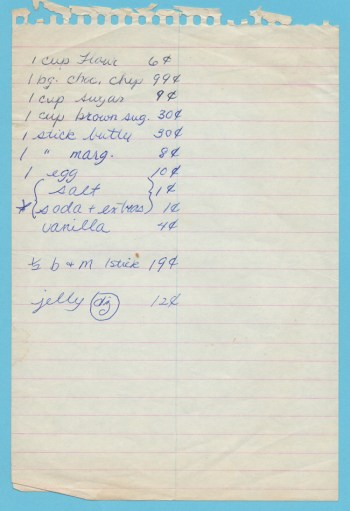 1 cup flour 6¢
1 bg. choc. chip 99¢
1 cup sugar 9¢
1 cup brown sug. 30¢
1 stick butter 30¢
1 " marg. 8¢
1 egg 10¢
salt 1¢
* soda + extras 1¢
vanilla 4¢
½ b + m 1 stick 19¢
jelly dz 12¢